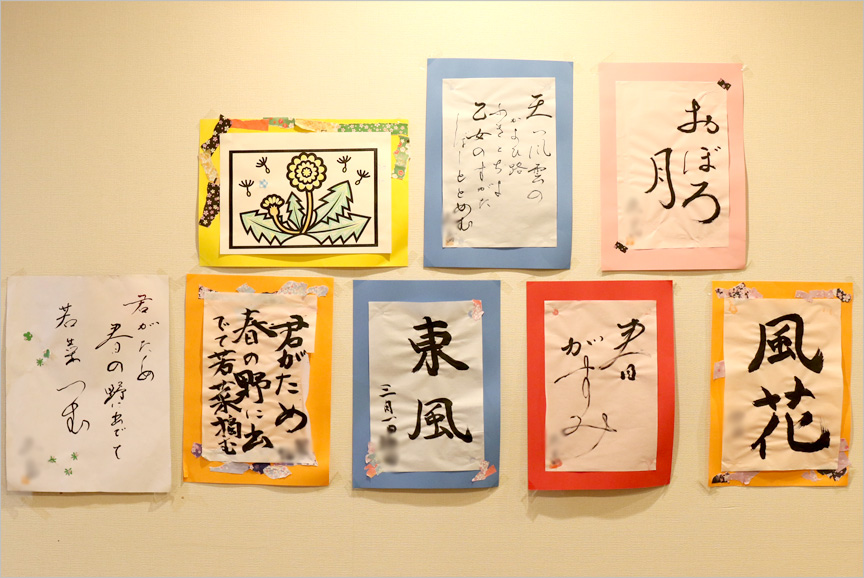 天つ風雲の
かよひ路
ふきとちよ
乙女のすがた
しばしととめむ
おぼろ
月
君がため
春の野に出でて
若菜つむ
君がため
春の野に出
でて若菜摘む
東風
三月一日
春
がすみ
風花